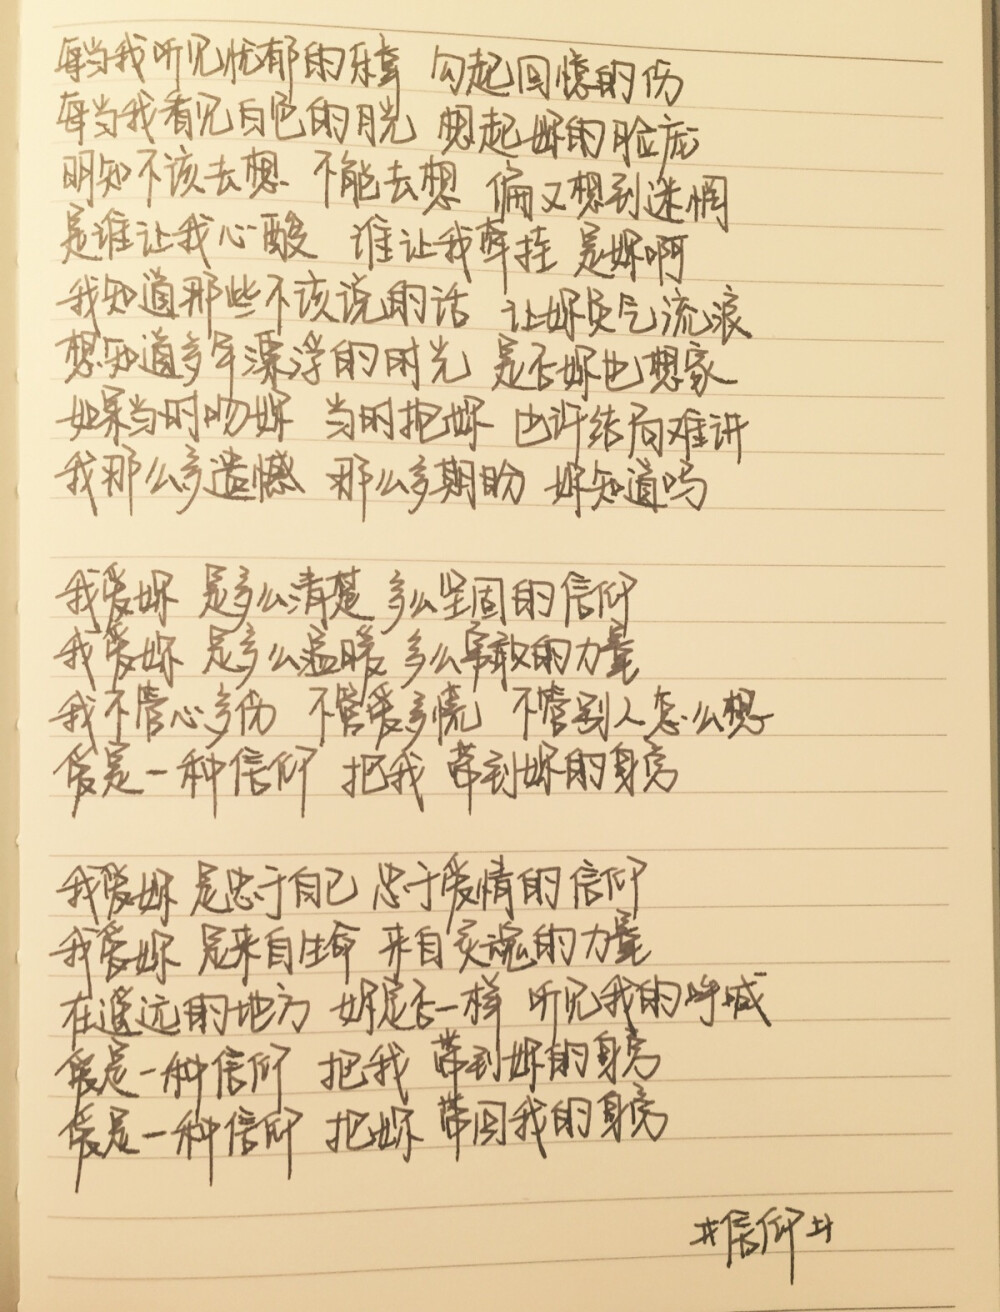 每当我听见忧郁的乐章 勾起回忆的伤
每当我看见白色的月光 想起妳的脸庞
明知不该去想 不能去想 偏又想到迷惘
是谁让我心酸 谁让我牵挂 是妳啊
我知道那些不该说的话 让妳负气流浪
想知道多年漂浮的时光 是否妳也想家
如果当时吻妳 当时抱妳 也许结局难讲
我那么多遗憾 那么多期盼 妳知道吗
我爱妳 是多么清楚 多么坚固的信仰
我爱妳 是多么温暖 多么勇敢的力量
我不管心多伤 不管爱多慌 不管别人怎么想
爱是一种信仰 把我 带到妳的身旁
我爱妳 是忠于自己 忠于爱情的信仰
我爱妳 是来自生命 来自灵魂的力量
在遥远的地方 妳是否一样 听见我的呼喊
爱是一种信仰 把我 带到妳的身旁
爱是一种信仰 把妳 带回我的身旁
#信仰#